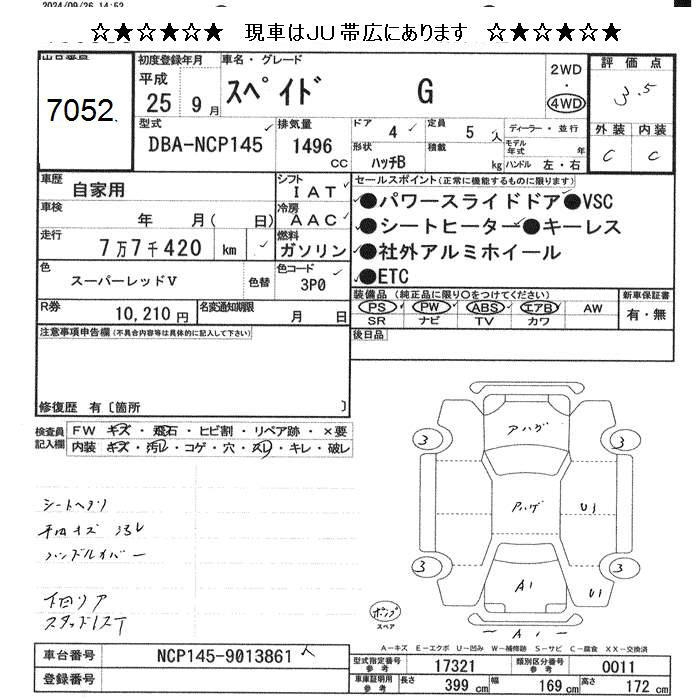 2024/09/26 14:52
☆★☆★☆★ 現車はJU帯広にあります ☆★☆★☆★
初度登録年月 車名・グレード 評価点
7052
平成 25年 9月 スペイド G 2WD・4WD 3.5
型式 排気量 ドア 定員 ディーラー・並行 外装 内装
DBA-NCP145 1496cc 4 5人 モデル年式 年 C C
形状 ハッチB 積載 kg ハンドル 左・右
車歴 自家用 シフト IAT セールスポイント(正常に機能するものに限ります)
車検 年 月( 日) 冷房 AAC ●パワースライドドア●VSC
●シートヒーター●キーレス
走行 7万7千420 km 燃料 ガソリン ●社外アルミホイール
色 スーパーレッドV 色替 色コード 3P0 ●ETC
R券 10,210円 名変通知期限 月 日
装備品(純正品に限り○をつけてください) 新車保証書
PS PW ABS エアB AW 有・無
SR ナビ TV カワ
注意事項申告欄(不具合内容等は具体的に記入して下さい) 後日品
修復歴 有〔箇所 〕
検査員記入欄 FW キズ・飛石・ヒビ割・リペア跡・×要
内装 キズ・汚レ・コゲ・穴・スレ・キレ・破レ
アハゲ
3 3
アハゲ U1
3 3
A1 U1
A1
スペア
A-キズ E-エクボ U-凹み W-補修跡 S-サビ C-腐食 XX-交換済
車台番号 NCP145-9013861
登録番号
型式指定番号 参考 17321 類別区分番号 参考 0011
車庫証明用 参考 長さ 399cm 幅 169cm 高さ 172cm